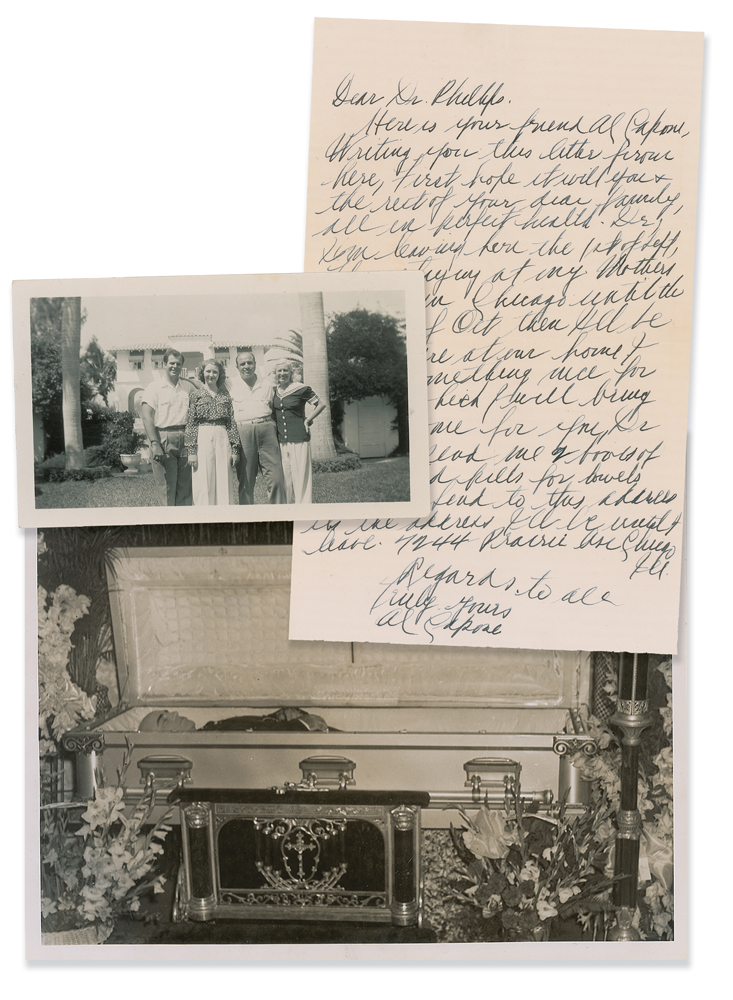 Dear Dr. Phillips.
Here is your friend Al Capone,
Writing you this letter from
here, First hope it will you +
the rest of your dear family,
all in perfect health. Dr,
I'm leaving here the 1st of Sept,
staying at my Mothers
in Chicago until the
Oct then I'll be
at our home &
something nice for
I will bring
me for you, Dr
send me 2 boxes of
pills for bowels
send to this address
is the address I'll be until I
leave. 7244 Prairie Ave Chicago
Ill.
Regards to all
Truly Yours
Al Capone